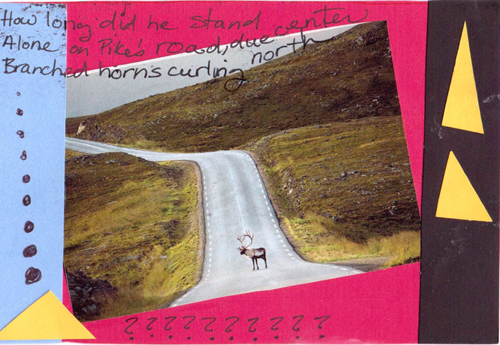 How long did he stand center
Alone on Pike's road, due north
Branched horns curling
? ? ? ? ? ? ? ? ? ?